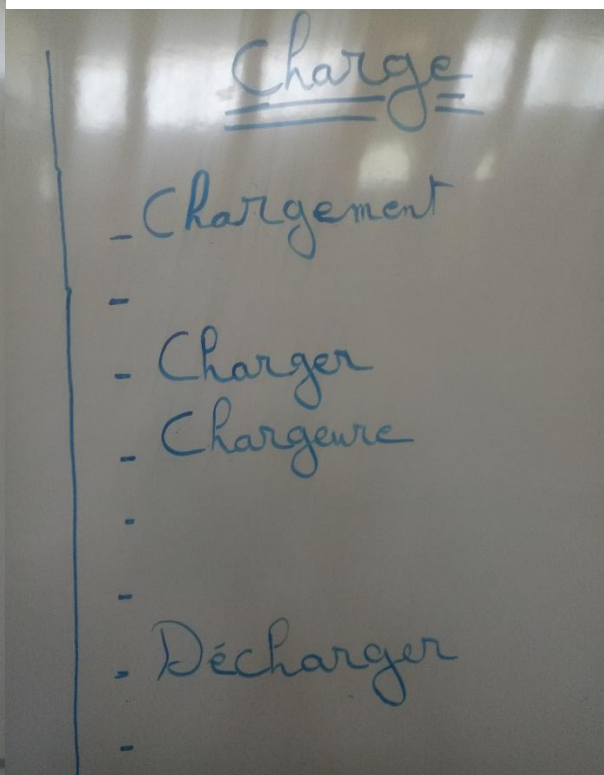 Charge
- Chargement
-
- Charger
- Chargeure
-
-
- Décharger
-